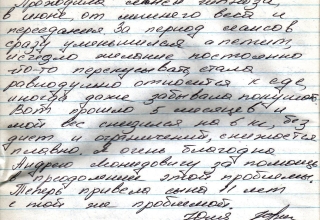 Проходила сеанс гипноза
в июне от лишнего веса и
переедания. За период сеансов
сразу уменьшился аппетит,
исчезло желание постоянно
что-то перекусывать, стала
равнодушно относится к еде,
иногда даже забывала покушать.
Вот прошло 5 месяцев и
мой вес снизился на 6 кг, без
диет и ограничений, снижается
плавно. Я очень благодарна
Андрею Леонидовичу за помощь
в преодолении этой проблемы.
Теперь привела сына 11 лет
с той же проблемой.
Юлия